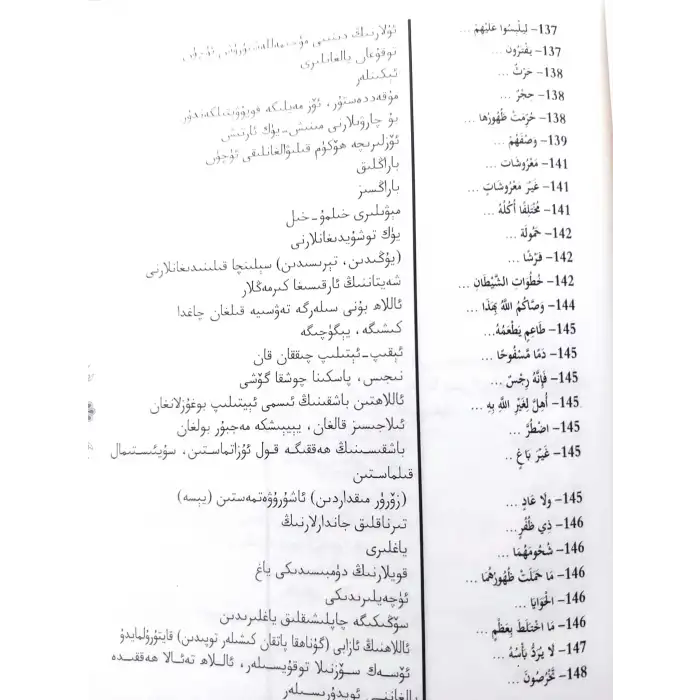 137- لِيَلْبِسُوا عَلَيْهِمْ ... ئۇلارنىڭ دىنىنى
137- يَفْتَرُونَ ... توقۇغان يالغانلىرى
138- حَرْثٌ ... ئېكىنلەر
138- حِجْرٌ ... مۇقەددەستۇر، ئۆز مەيلىگە قويۇۋېتىلگەندۇر
138- حُرِّمَتْ ظُهُورُهَا ... بۇ چارۋىلارنى مىنىش-يۈك ئارتىش
139- وَصْفَهُمْ ... ئۆزلىرىچە ھۆكۈم قىلىۋالغانلىقى ئۈچۈن
141- مَعْرُوشَات ... باراڭلىق
141- غَيْرَ مَعْرُوشَاتٍ ... باراڭسىز
141- مُخْتَلِفًا أُكُلُهُ ... مېۋىلىرى خىلمۇ-خىل
142- حَمُولَة ... يۈك توشۇيدىغانلارنى
142- فَرْشًا ... (يۇڭىدىن، تېرىسىدىن) سېلىنچا قىلىنىدىغانلارنى
142- خُطُوَاتِ الشَّيْطَانِ ... شەيتاننىڭ ئارقىسىغا كىرمەڭلار
144- وَصَّاكُمُ اللَّهُ بِهَذَا ... ئاللاھ بۇنى سىلەرگە تەۋسىيە قىلغان چاغدا
145- طَاعِمٍ يَطْعَمُهُ... كىشىگە، يېگۈچىگە
145- دَمًا مَّسْفُوحًا ... ئېقىپ-ئېتىلىپ چىققان قان
145- فَإِنَّهُ رِجْسٌ ... نىجىس، پاسكىنا چوشقا گۆشى
145- أُهِلَّ لِغَيْرِ اللَّهِ بِهِ ... ئاللاھتىن باشقىنىڭ ئىسمى ئېيتىلىپ بوغۇزلانغان
145- اضْطُرَّ ... ئىلاجىسىز قالغان، يېيىشكە مەجبۇر بولغان
145- غَيْرَ بَاغٍ ... باشقىسىنىڭ ھەققىگە قول ئۇزاتماستىن، سۇيئىستىمال
قىلماستىن
145- ولا عَادٍ ... (زۆرۈر مىقداردىن) ئاشۇرۇۋەتمەستىن (يېسە)
146- ذِي ظُفُرٍ ... تىرناقلىق جاندارلارنىڭ
146- شُحُومَهُمَا ... ياغلىرى
146- مَا حَمَلَتْ ظُهُورُهُمَا ... قويلارنىڭ دۈمبىسىدىكى ياغ
146- الْحَوَايَا ... ئۈچەيلىرىدىكى
146- مَا اخْتَلَطَ بِعَظْمٍ ... سۆڭىكىگە چاپلىشىقلىق ياغلىرىدىن
147- لَا يُرَدُّ بَأْسُهُ ... ئاللاھنىڭ ئازابى (گۇناھقا پاتقان كىشىلەر توپىدىن) قايتۇرۇلمايدۇ
148- تَخْرُصُونَ ... ئۆسەك سۆزنىلا توقۇيسىلەر، ئاللاھ تەئالا ھەققىدە